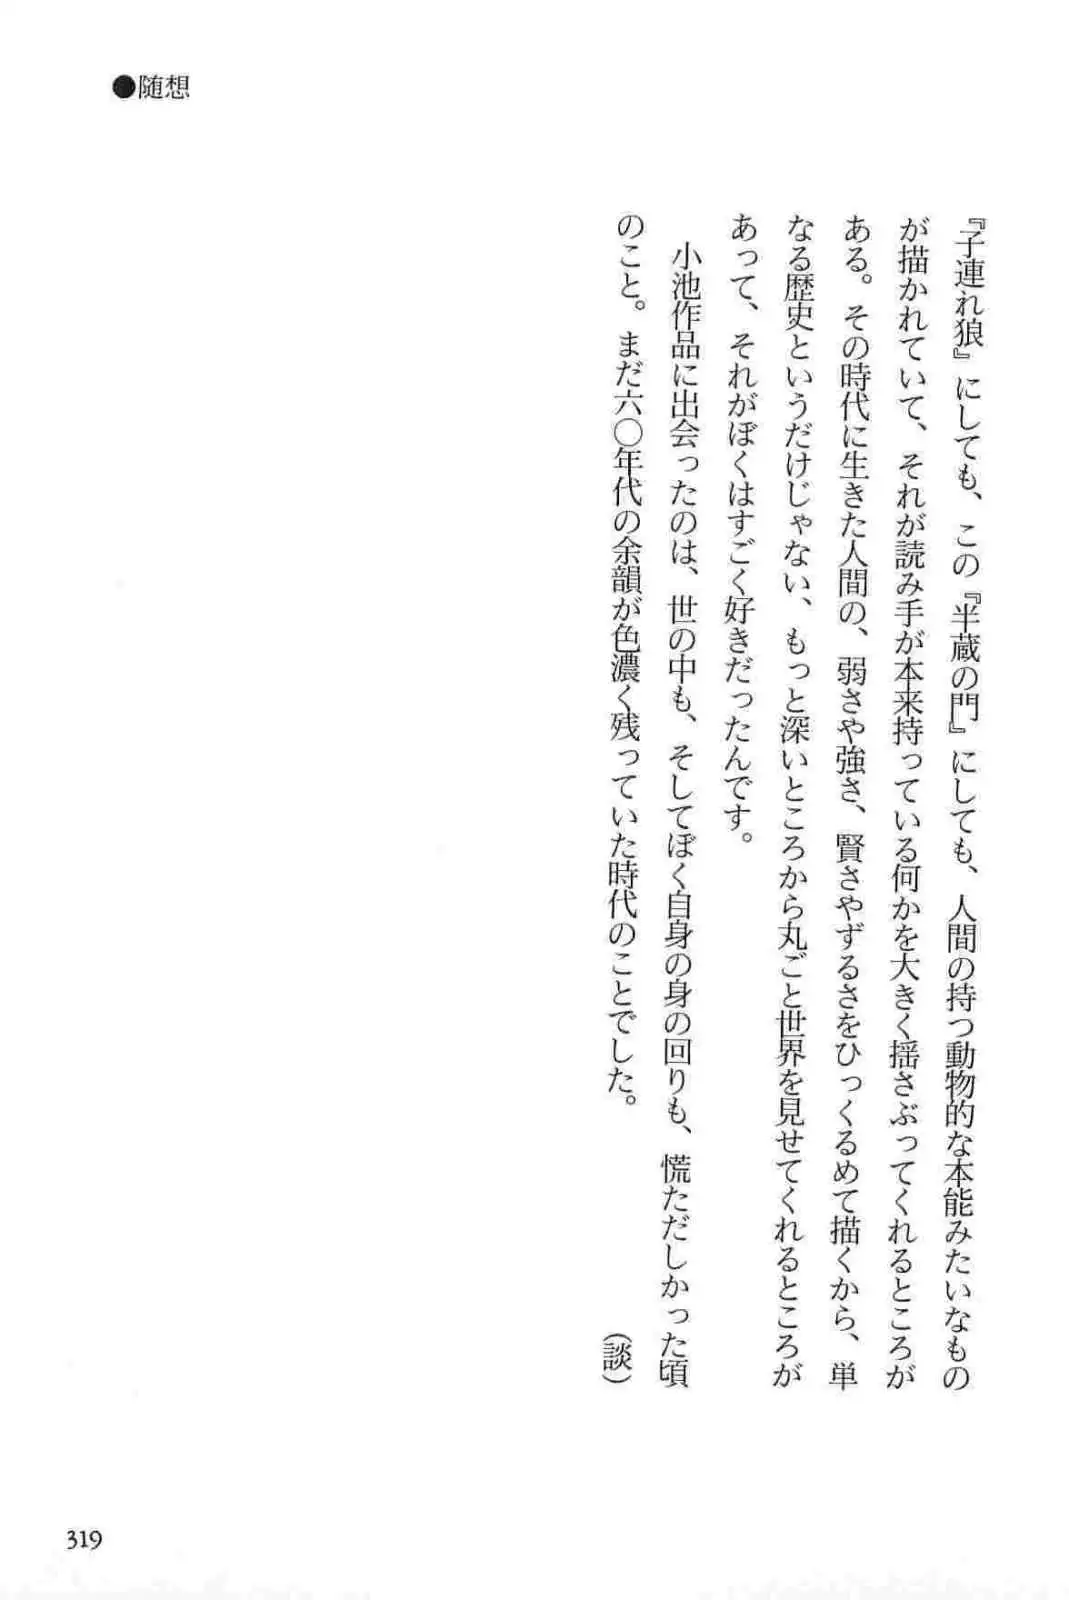 ●随想
『子連れ狼』にしても、この『半蔵の門』にしても、人間の持つ動物的な本能みたいなもの
が描かれていて、それが読み手が本来持っている何かを大きく揺さぶってくれるところが
ある。その時代に生きた人間の、弱さや強さ、賢さやずるさをひっくるめて描くから、単
なる歴史というだけじゃない、もっと深いところから丸ごと世界を見せてくれるところが
あって、それがぼくはすごく好きだったんです。
小池作品に出会ったのは、世の中も、そしてぼく自身の身の回りも、慌ただしかった頃
のこと。まだ六〇年代の余韻が色濃く残っていた時代のことでした。
(談)
319